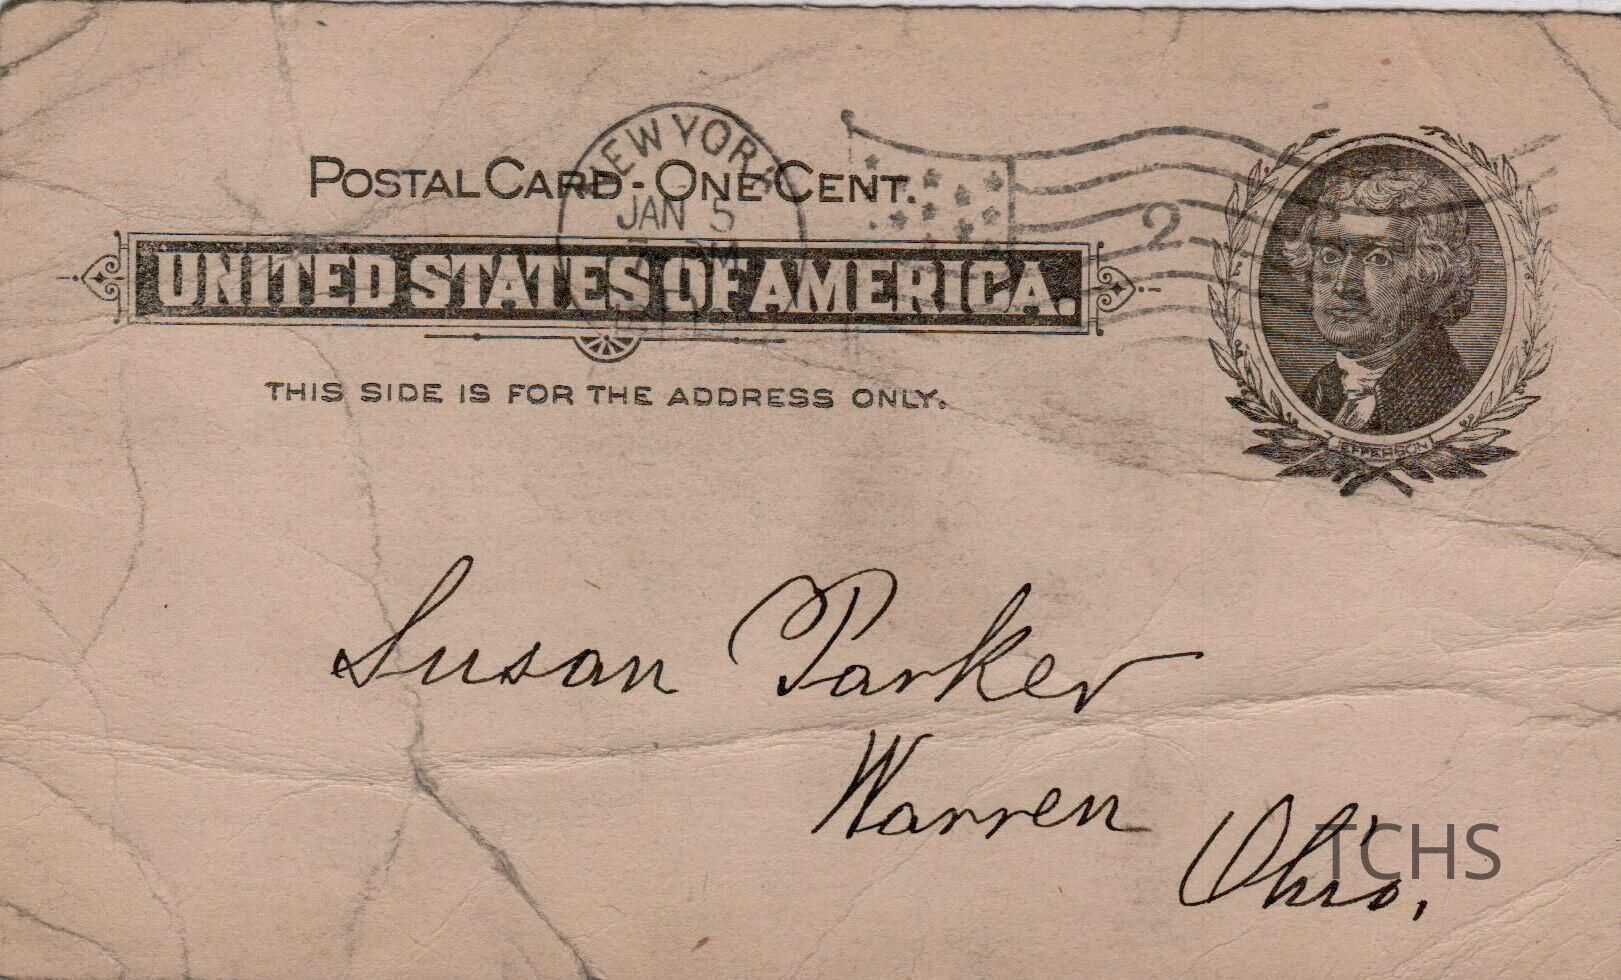 NEW YORK
POSTAL CARD - ONE CENT.
JAN 5
2
UNITED STATES OF AMERICA.
THIS SIDE IS FOR THE ADDRESS ONLY.
JEFFERSON
Susan Parker
Warren
Ohio,
TCHS